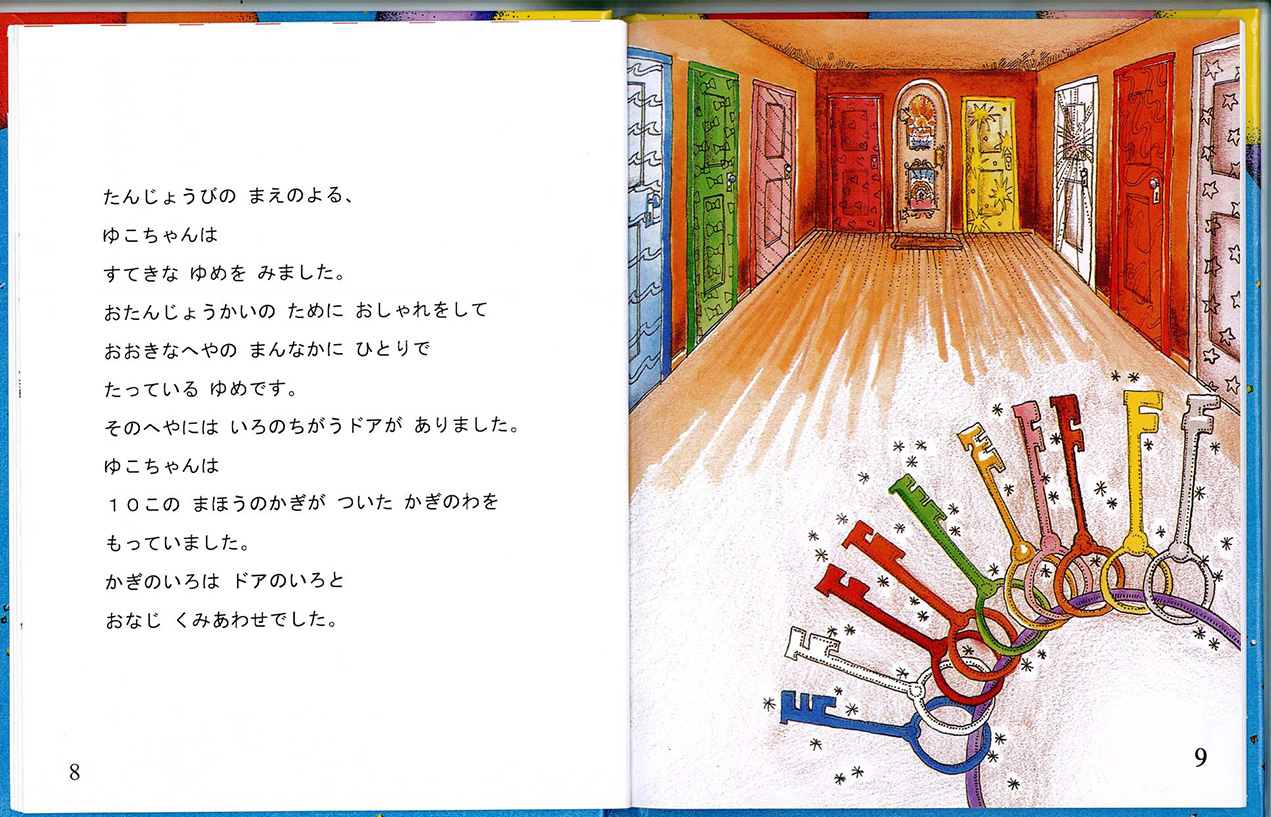 たんじょうびの まえのよる、
ゆこちゃんは
すてきな ゆめを みました。
おたんじょうかいの ために おしゃれをして
おおきなへやの まんなかに ひとりで
たっている ゆめです。
そのへやには いろのちがうドアが ありました。
ゆこちゃんは
１０この まほうのかぎが ついた かぎのわを
もっていました。
かぎのいろは ドアのいろと
おなじ くみあわせでした。
8
9